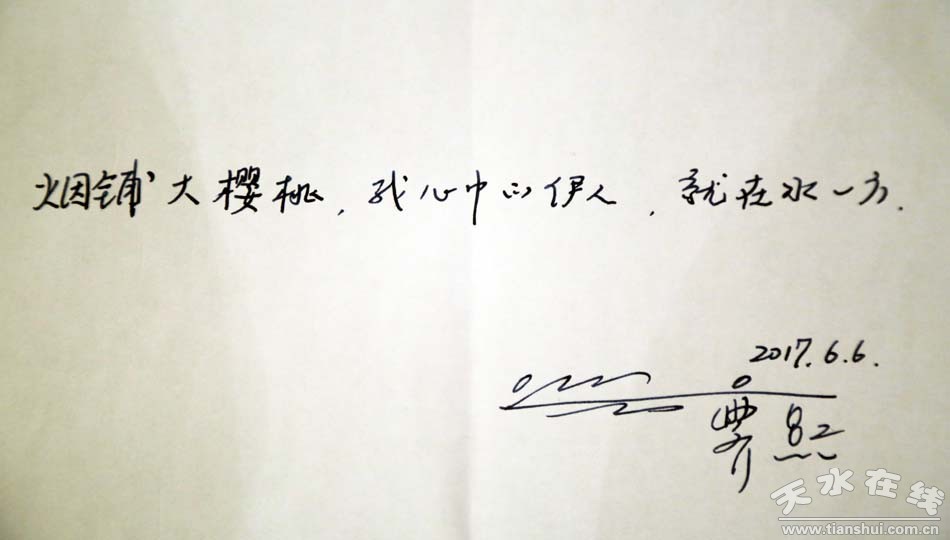 烟铺大樱桃，我心中的伊人，就在水一方.
2017.6.6.
天水在线
www.tianshui.com.cn